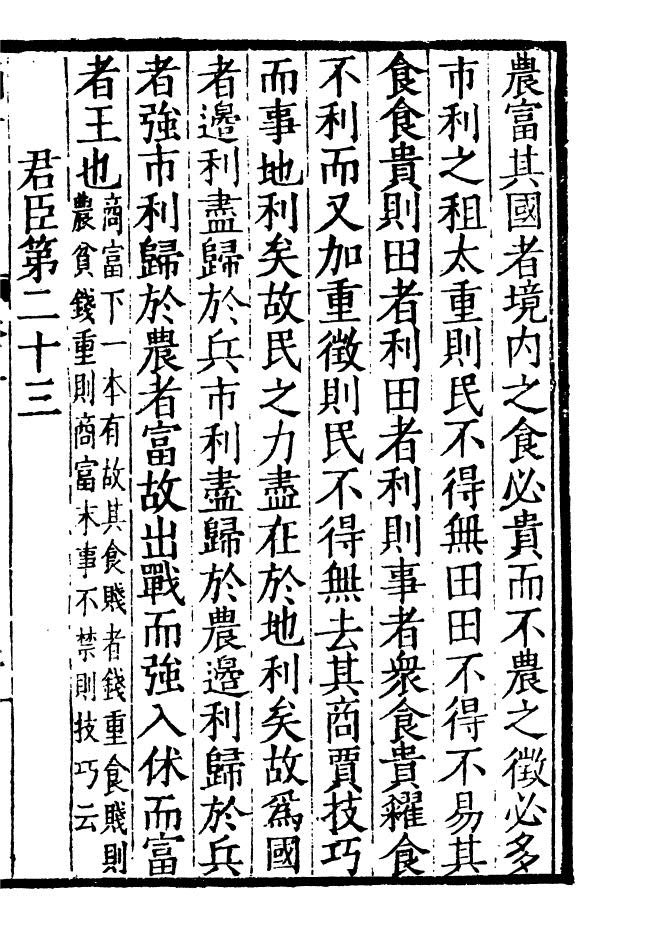 農富其國者境内之食必貴而不農之徵必多
市利之租太重則民不得無田田不得不易其
食食貴則田者利田者利則事者衆食貴糴食
不利而又加重徵則民不得無去其商賈技巧
而事地利矣故民之力盡在於地利矣故爲國
者邉利盡歸於兵市利盡歸於農邉利歸於兵
者強市利歸於農者富故出戰而強入休而富
者王也
商富下一本有故其食賤者錢重食賤則
農貧錢重則商富末事不禁則技巧云
君臣第二十三